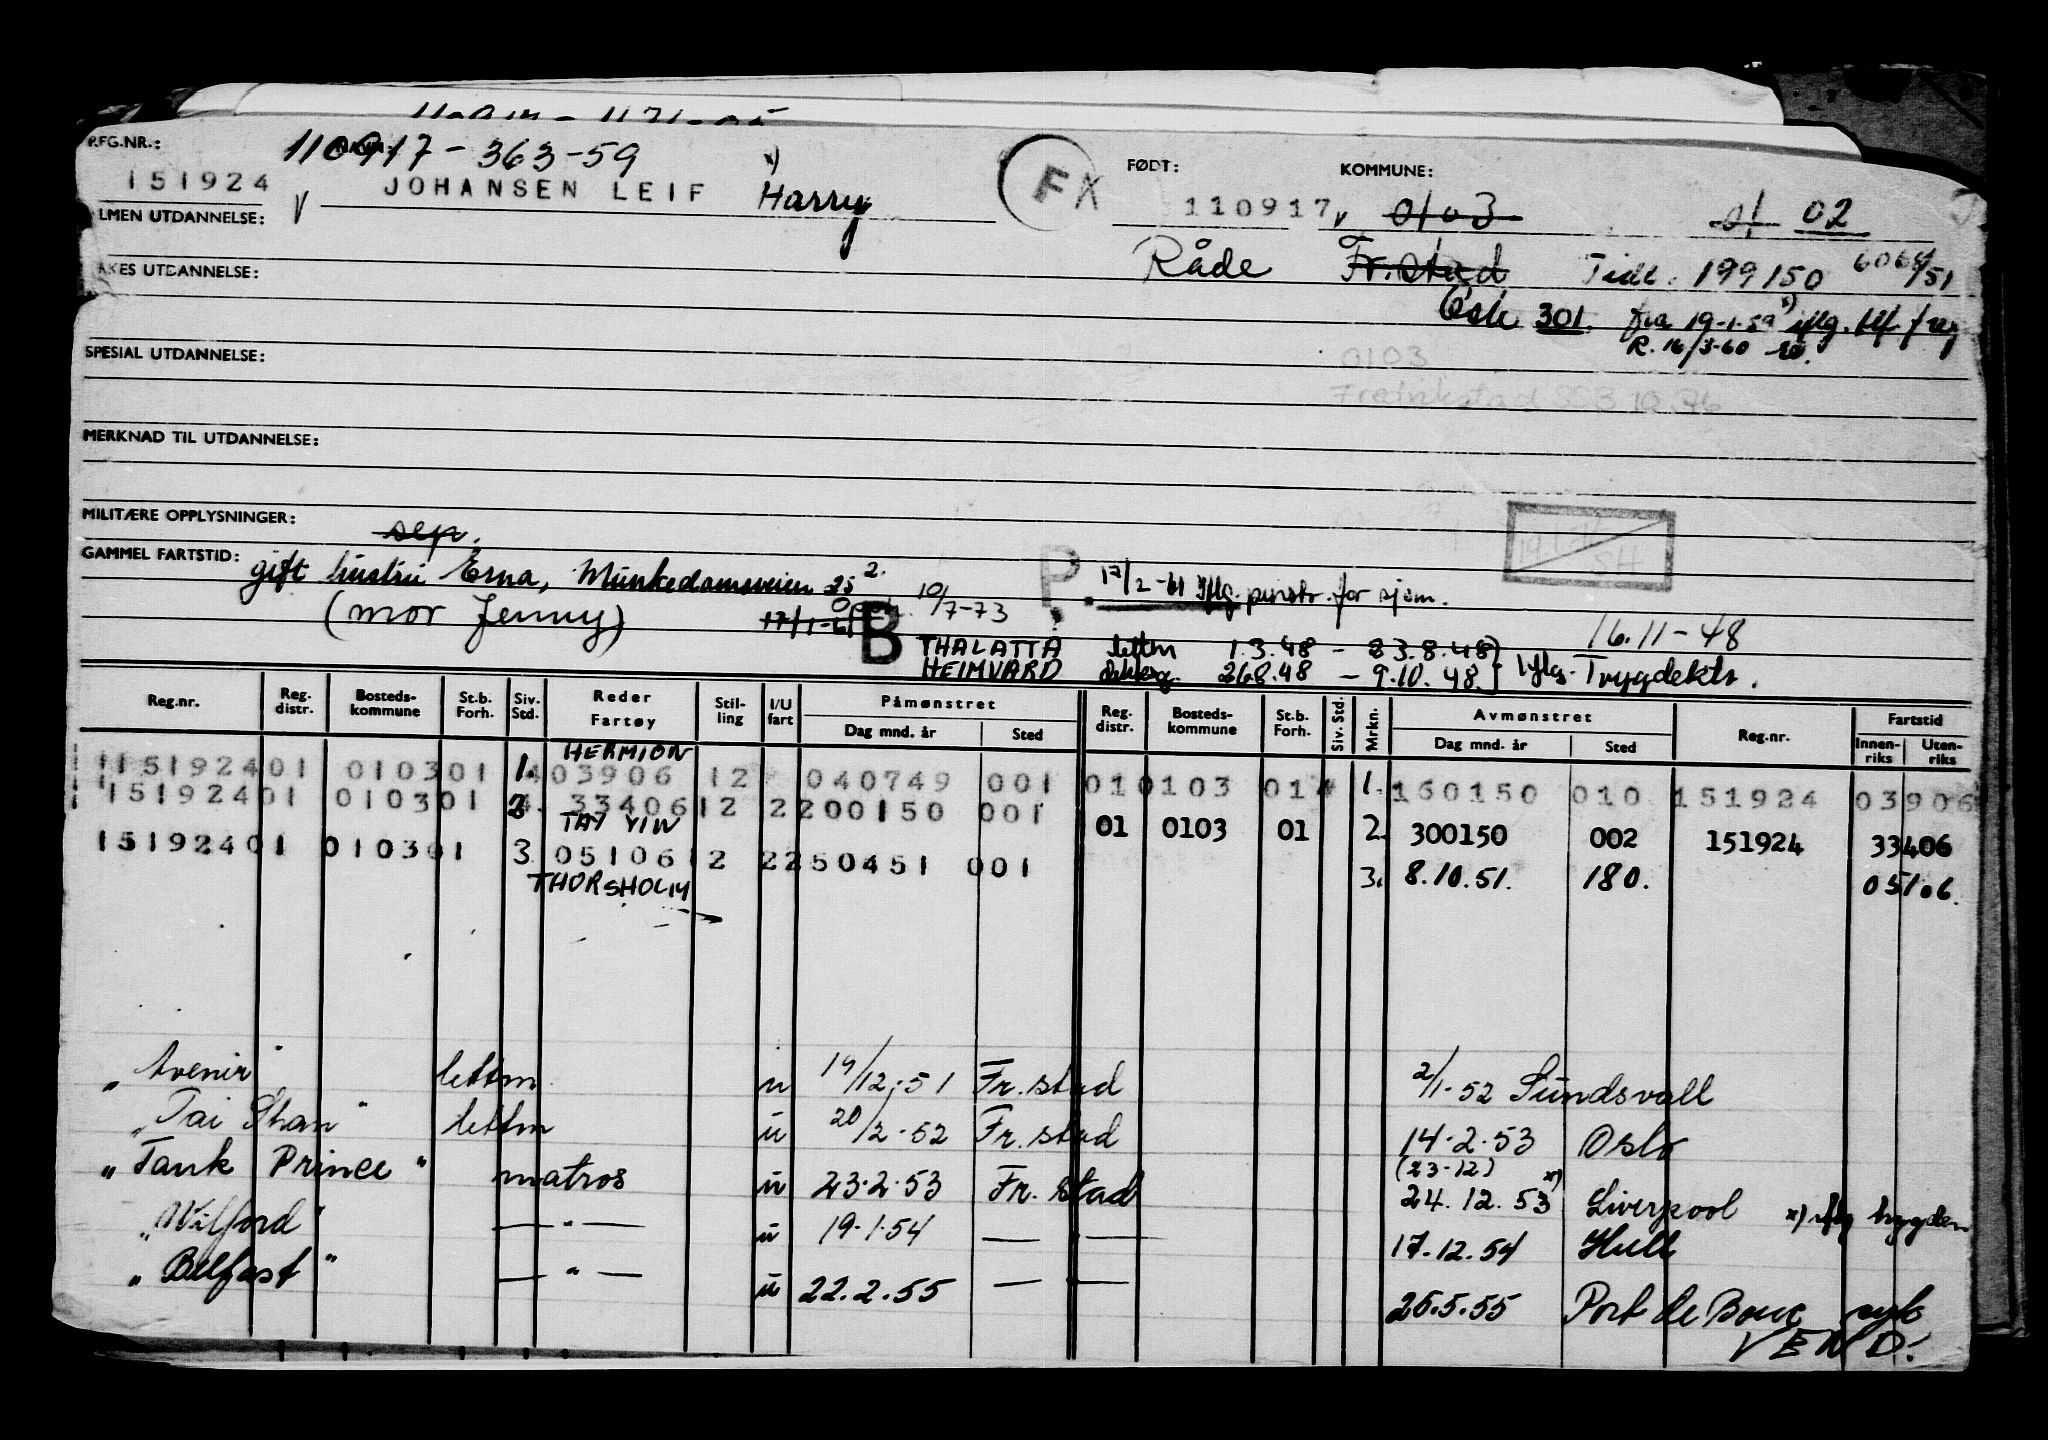 REG.NR.: 110917-363-59 x)
151924 V JOHANSEN LEIF Harry
FX
FØDT: KOMMUNE:
110917 v 0103 01 02
LMEN UTDANNELSE:
Råde Fr.stad Tidl. 199150 6068/51
AKES UTDANNELSE:
Oslo 301. fra 19-1-59 x) iflg. tlf. f reg
R. 16/3-60
SPESIAL UTDANNELSE:
0103
Fredrikstad SSB 10.76
MERKNAD TIL UTDANNELSE:
MILITÆRE OPPLYSNINGER: sep.
GAMMEL FARTSTID: gift hustru Erna, Munkedamsveien 25 2.
P. 17/2-61 iflg. penstr. for sjøm.
(mor Jenny) 17/1-61 B 10/7-73
16.11-48
THALATTA lettm 1.3.48 - 23.8.48
HEIMVARD 26.8.48 - 9.10.48. } iflg. Trygdekto.
Reg.nr. Reg. distr. Bosteds- kommune St.b. Forh. Siv. Std. Reder Fartøy Stil- ling I/U fart Påmønstret Dag mnd. år Sted Reg. distr. Bosteds- kommune St.b. Forh. Siv. Std. Mrkn. Avmønstret Dag mnd. år Sted Reg.nr. Fartstid Innen- riks Uten- riks
HERMION
151924 01 0103 01 1. 403906 12 040749 001 01 0103 01 1. 160150 010 151924 03906
151924 01 0103 01 2. 33406 12 2 200150 001
TAI YIN 01 0103 01 2. 300150 002 151924 33406
151924 01 0103 01 3. 05106 12 2 250451 001
THORSHOLM 3. 8.10.51. 180. 05106.
"Avenir" lettm u 14/12.51 Fr.stad 2/1.52 Sundsvall
"Tai Shan" lettm u 20/2.52 Fr.stad 14.2.53 Oslo
"Tank Prince" matros u 23.2.53 Fr.stad (23-12) 24.12.53 x) Liverpool x) iflg hyrgden
"Wilford" — " — u 19.1.54 — " — 17.12.54 Hull
"Belfast" — " — u 22.2.55 — " — 26.5.55 Port de Bouc syk
VEND!